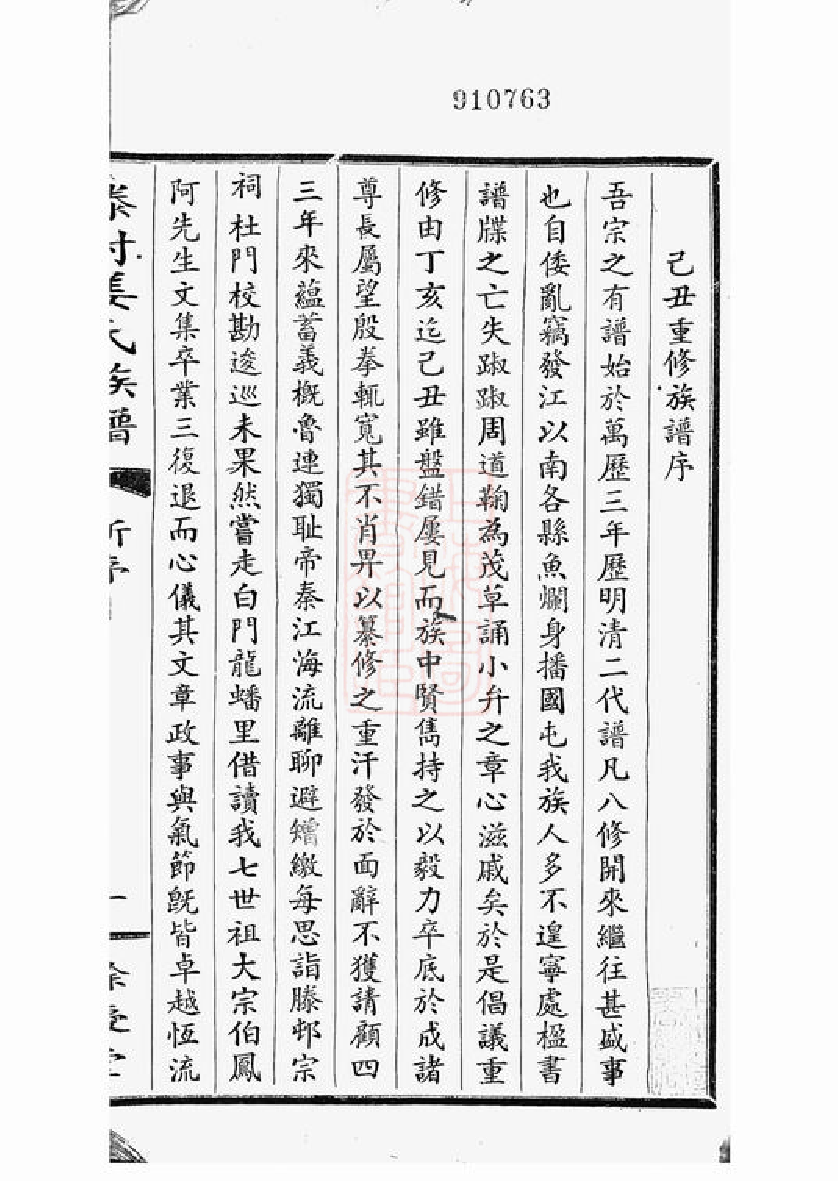 910763
己丑重修族譜序
吾宗之有譜始於萬歷三年歷明清二代譜凡八修開來繼往甚盛事
也自倭亂竊發江以南各縣魚爛身播國屯我族人多不遑寧處楹書
譜牒之亡失踧踧周道鞠為茂草誦小弁之章心滋戚矣於是倡議重
修由丁亥迄己丑雖盤錯屢見而族中賢雋持之以毅力卒底於成諸
尊長屬望殷拳輒寬其不肖畀以纂修之重汗發於面辭不獲請顧四
三年來蘊蓄義概魯連獨耻帝秦江海流離聊避矰繳每思詣滕邨宗
祠杜門校勘逡巡未果然嘗走白門龍蟠里借讀我七世祖大宗伯鳳
阿先生文集卒業三復退而心儀其文章政事與氣節旣皆卓越恆流
滕村姜氏族譜 新序 一